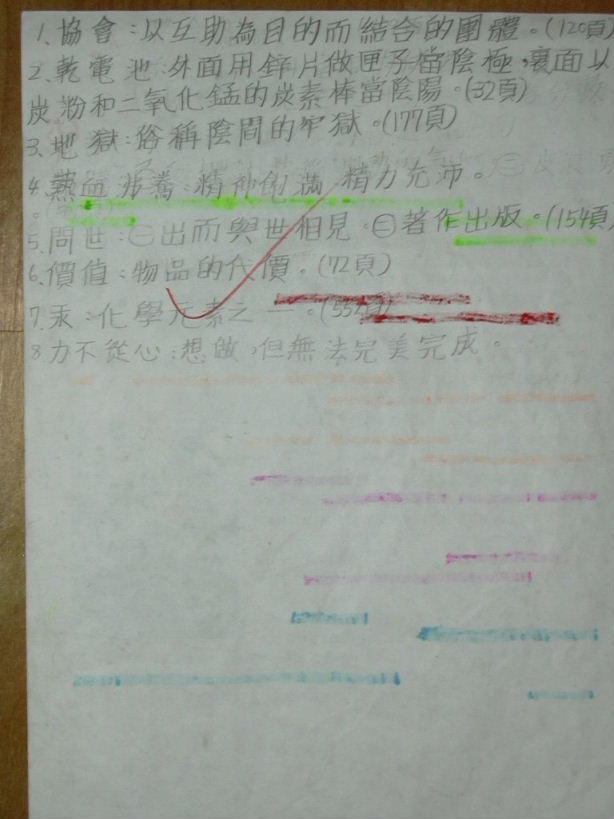 1、協會：以互助為目的而結合的團體。(120頁)
2、乾電池：外面用鋅片做匣子當陰極，裏面以
炭粉和二氧化錳的炭素棒當陰陽。(32頁)
3、地獄：俗稱陰間的牢獄。(177頁)
4、熱血沸騰：精神飽滿，精力充沛。
5、問世：㊀出而與世相見。㊁著作出版。(154頁)
6、價值：物品的代價。(72頁)
7、汞：化學元素之一。(552頁)
8、力不從心：想做，但無法完美完成。